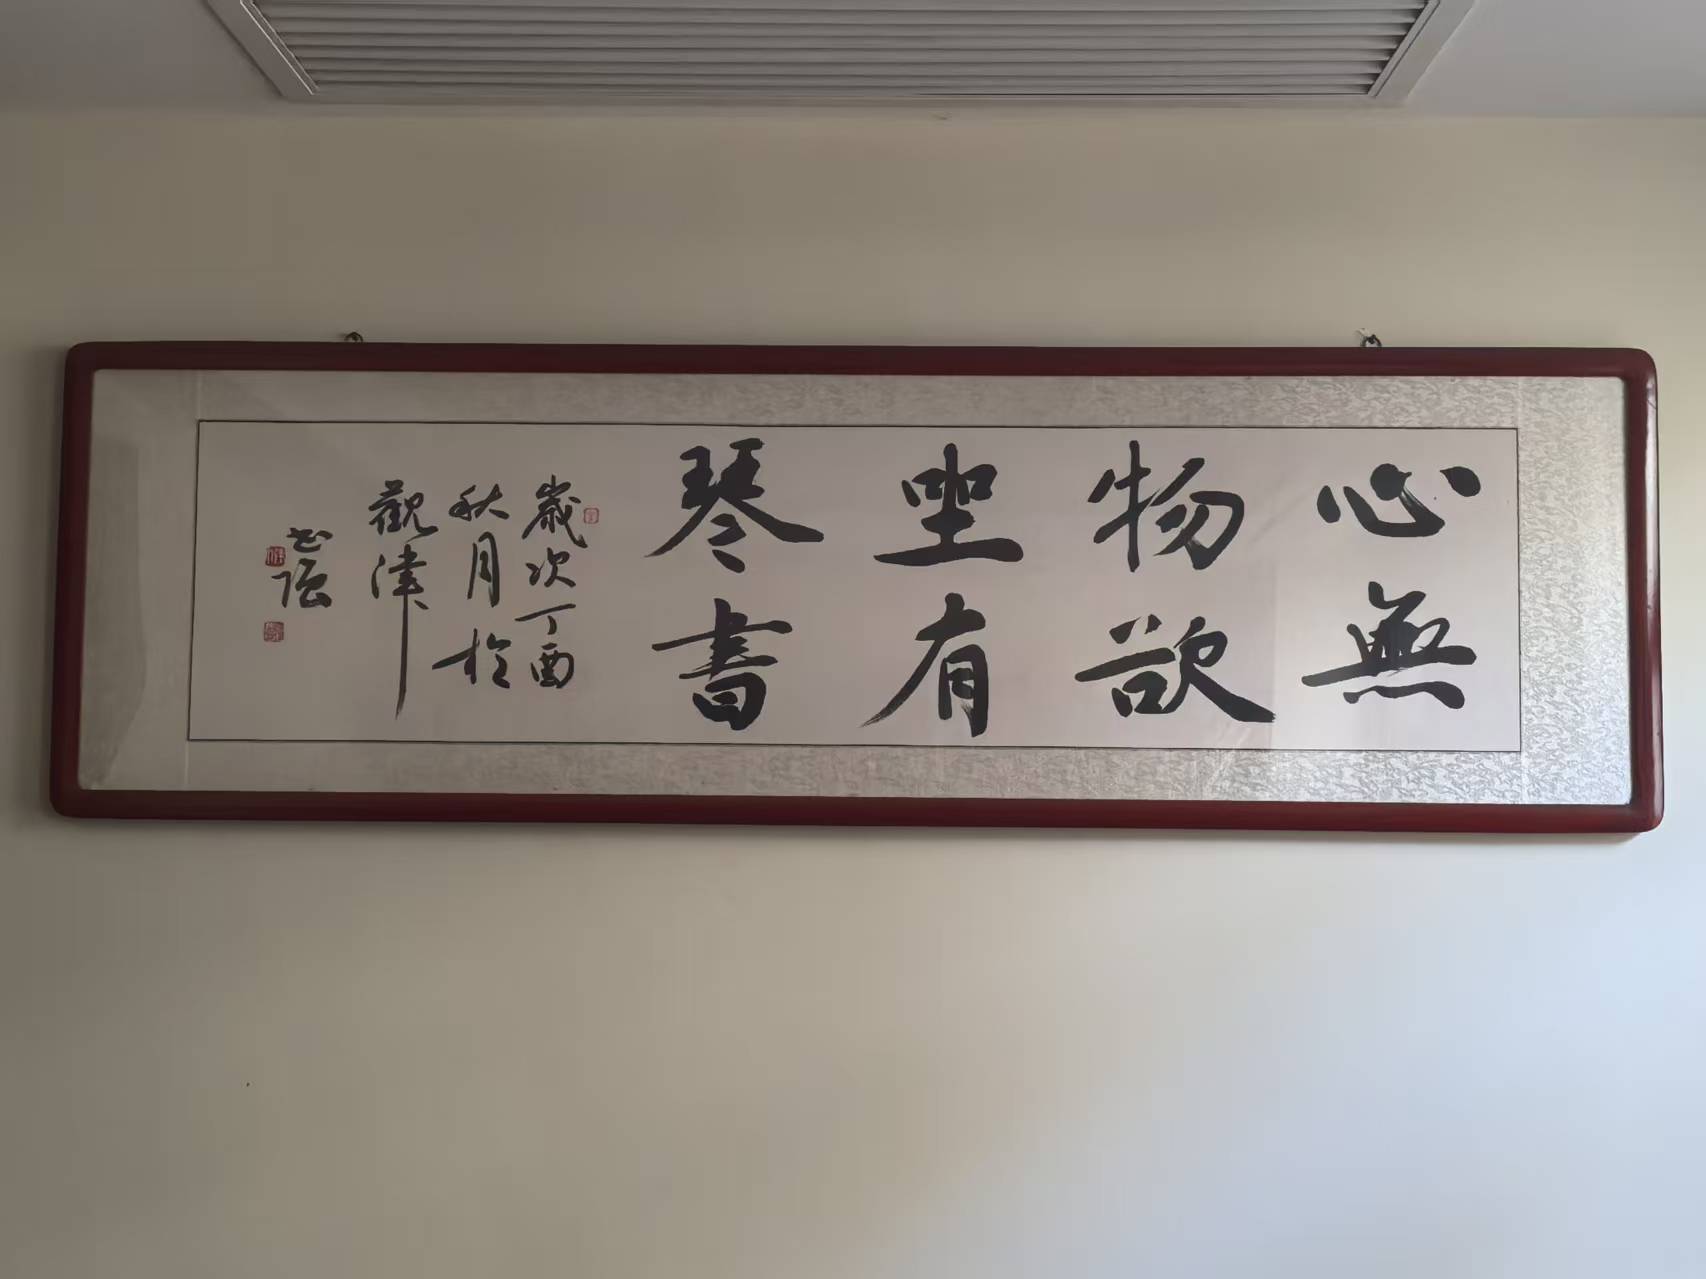 心無
物欲
坐有
琴書
歲次丁酉
秋月於
觀津